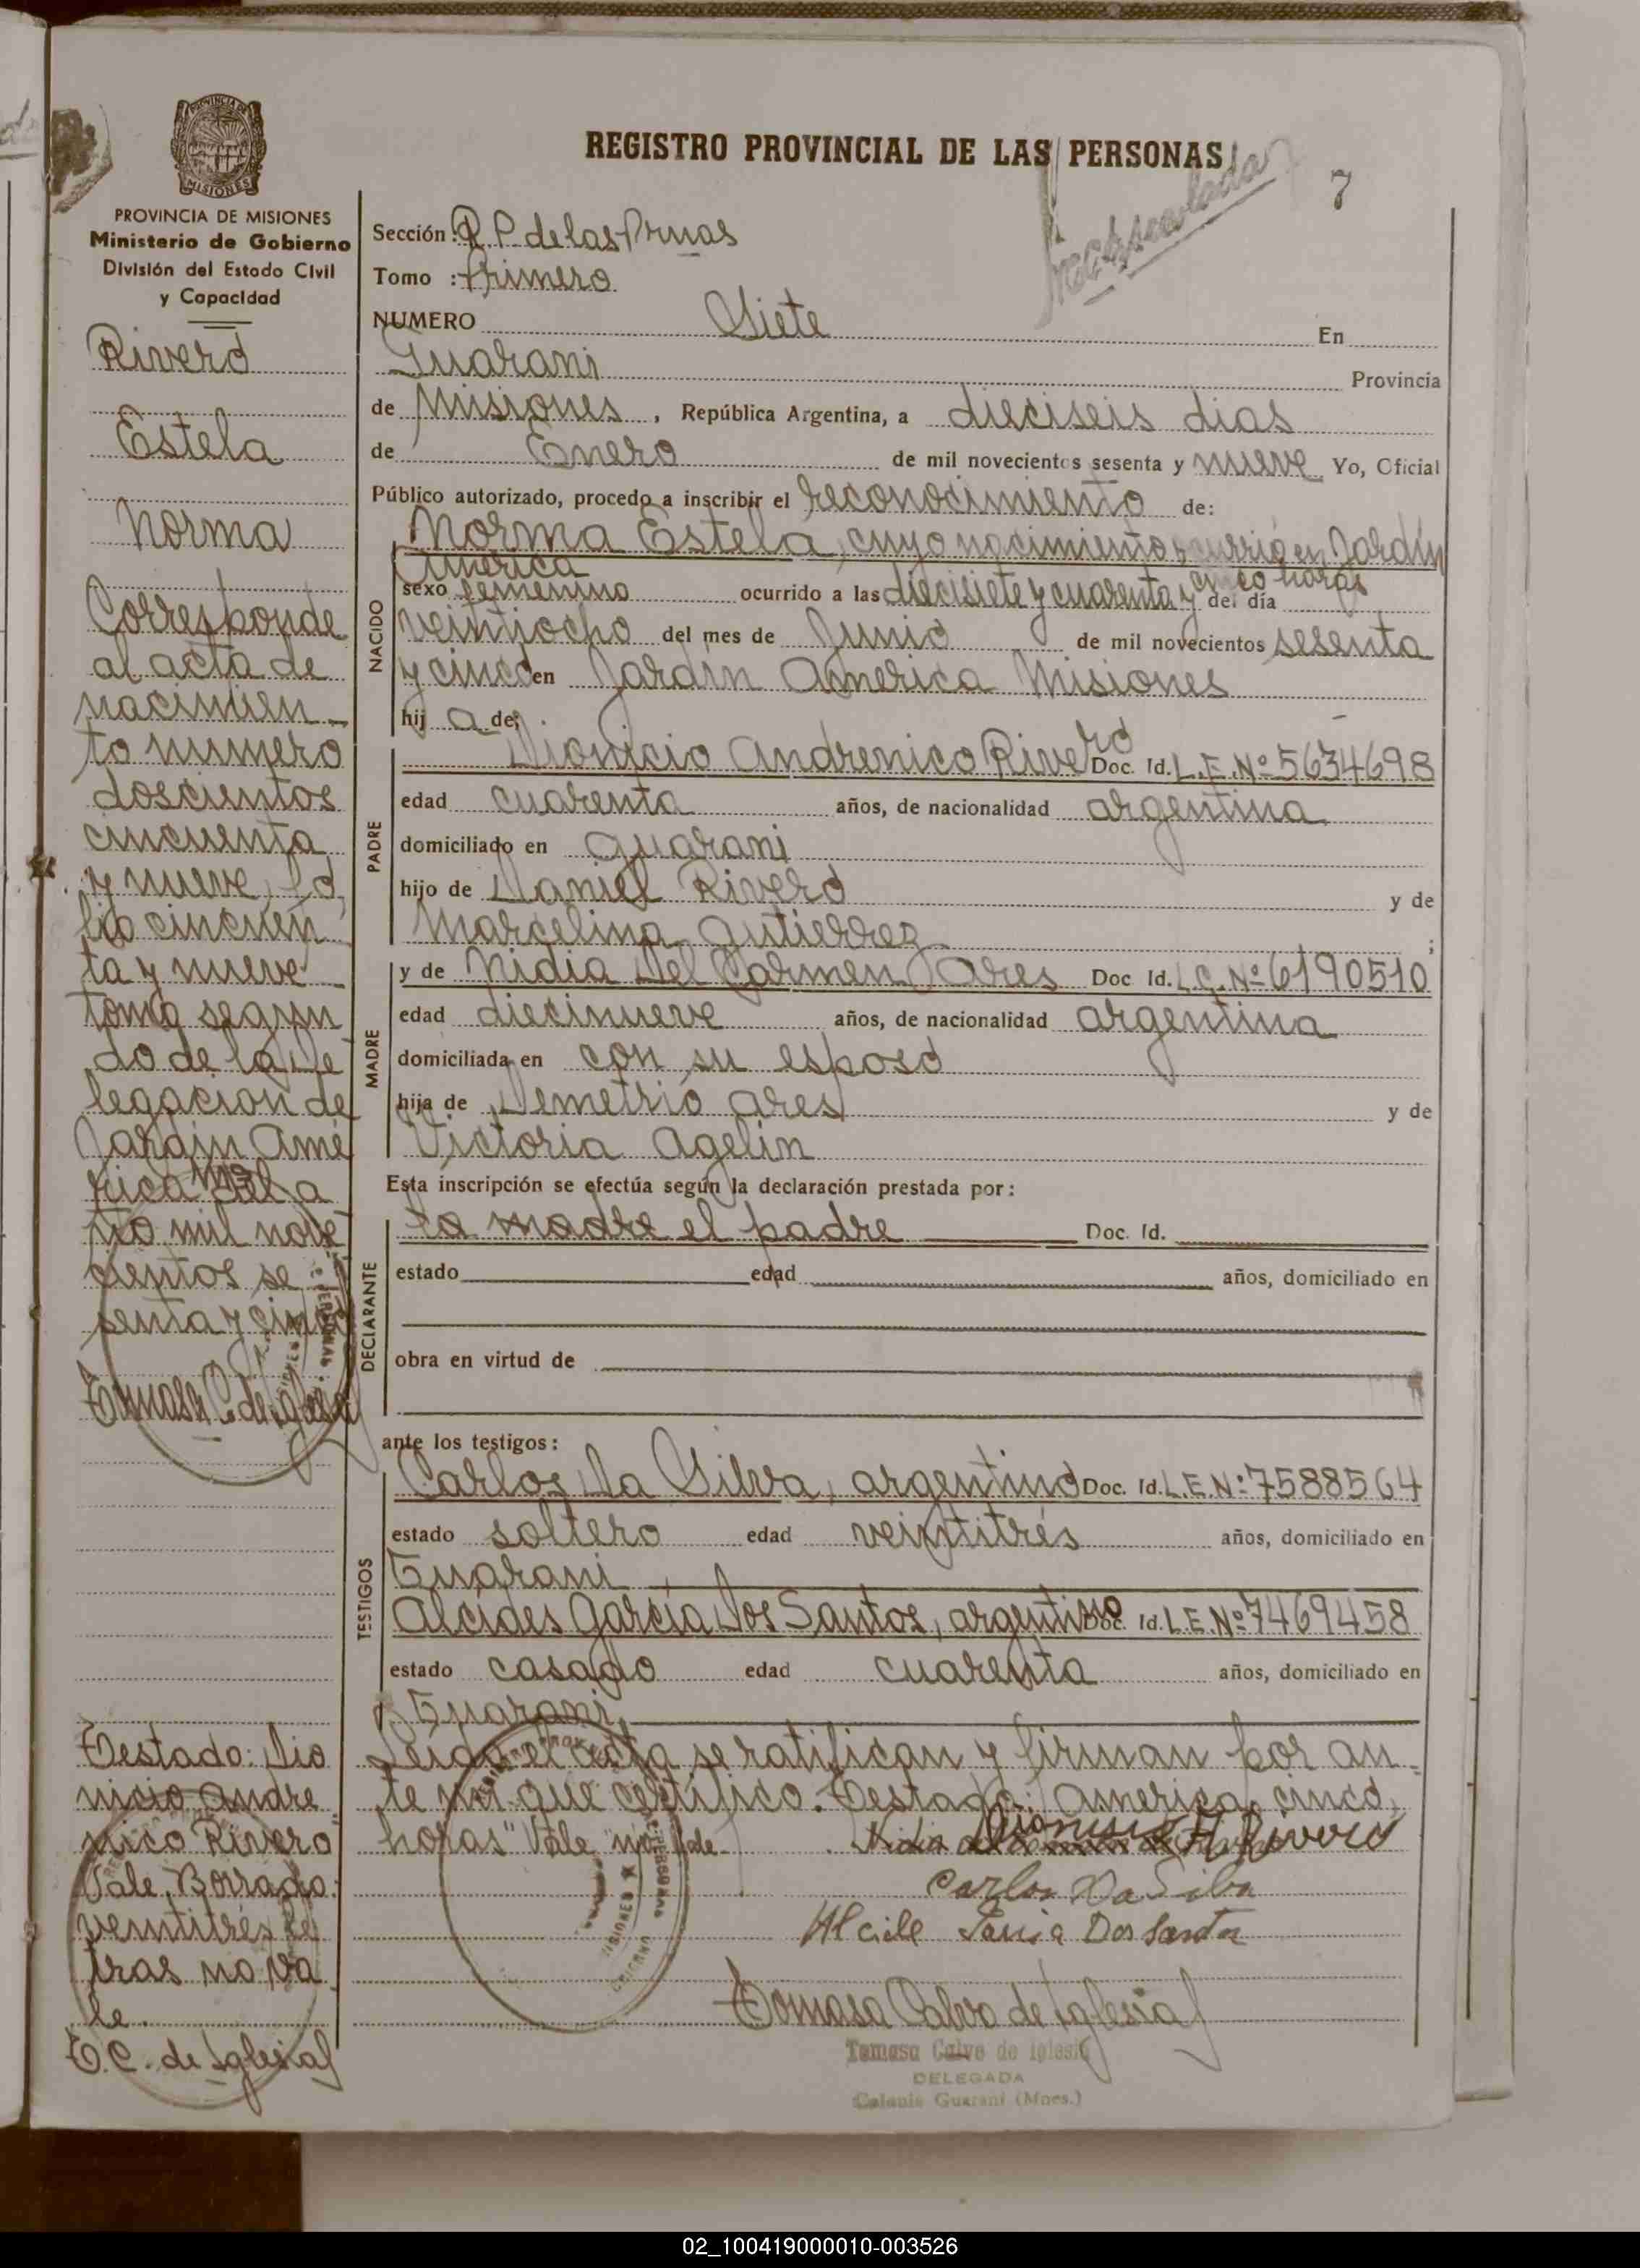 REGISTRO PROVINCIAL DE LAS PERSONAS
7
PROVINCIA DE MISIONES
Ministerio de Gobierno
División del Estado Civil
y Capacidad
Rivero
Estela
Norma
Corresponde
al acta de
nacimien-
to numero
doscientos
cincuenta
y nueve, fo
lio cincuen
ta y nueve
tomo segun
do de la De
legacion de
Jardín Amé
rica
ño mil nove
cientos se
senta y cinco
Tomasa C. de Iglesias
Testado: Dio
nicio Andre
nico Rivero
Vale, Borrado:
veintitrés le
tras no va
le.
T.C. de Iglesias
Sección: R P de las Prnas
Tomo : Primero
NUMERO Siete En
Guarani Provincia
de Misiones, República Argentina, a dieciseis dias
de Enero de mil novecientos sesenta y nueve Yo, Oficial
Público autorizado, procedo a inscribir el reconocimiento de:
Norma Estela, cuyo nacimiento ocurrió en Jardín
America
NACIDO
sexo femenino ocurrido a las diecisiete y cuarenta y cinco horas del día
veintiocho del mes de Junio de mil novecientos sesenta
y cinco en Jardín America Misiones
hij a de:
PADRE
Dionicio Andrenico Rivero Doc. Id. L.E. Nº 5634698
edad cuarenta años, de nacionalidad argentina
domiciliado en Guarani
hijo de Daniel Rivero y de
Marcelina Gutierrez ;
MADRE
y de Nidia Del Carmen Ares Doc Id. L.C. Nº 6190510
edad diecinueve años, de nacionalidad argentina
domiciliada en con su esposo
hija de Demetrio Ares y de
Victoria Agelin
Esta inscripción se efectúa según la declaración prestada por:
DECLARANTE
la madre el padre Doc. Id.
estado edad años, domiciliado en
obra en virtud de
ante los testigos:
TESTIGOS
Carlos Da Silva, argentino Doc. Id. L.E.N: 7588564
estado soltero edad veintitrés años, domiciliado en
Guarani
Alcides García Dos Santos, argentino Doc. Id. L.E. Nº 7469458
estado casado edad cuarenta años, domiciliado en
Guarani
Leida el acta se ratifican y firman por an-
te mi que certifico. Testado: America, cinco,
horas" Vale "no vale.
Carlos Da Silva
Dos Santos
Tomasa Calvo de Iglesias
Tomasa Calvo de Iglesias
DELEGADA
Colonia Guarani (Mnes.)
02_100419000010-003526